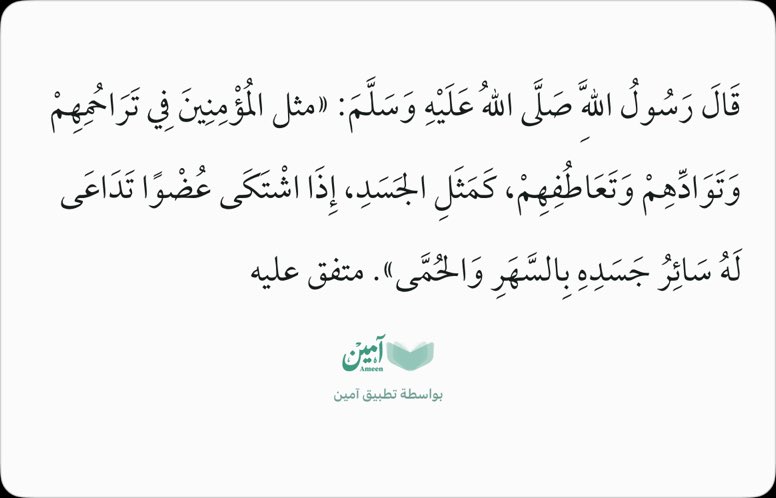 قَالَ رَسُولُ اللهَِّ صَلَّى اللهُ عَلَيْهِ وَسَلَّمَ: «مثل الْمُؤْمِنِينَ فِي تَرَاحُمِهِمْ
وَتَوَادِّهِمْ وَتَعَاطُفِهِمْ، كَمَثَلِ الجَسَدِ، إِذَا اشْتَكَى عُضْوًا تَدَاعَى
لَهُ سَائِرُ جَسَدِهِ بِالسَّهَرِ وَالحُمَّى». متفق عليه
آمين
Ameen
بواسطة تطبيق آمين